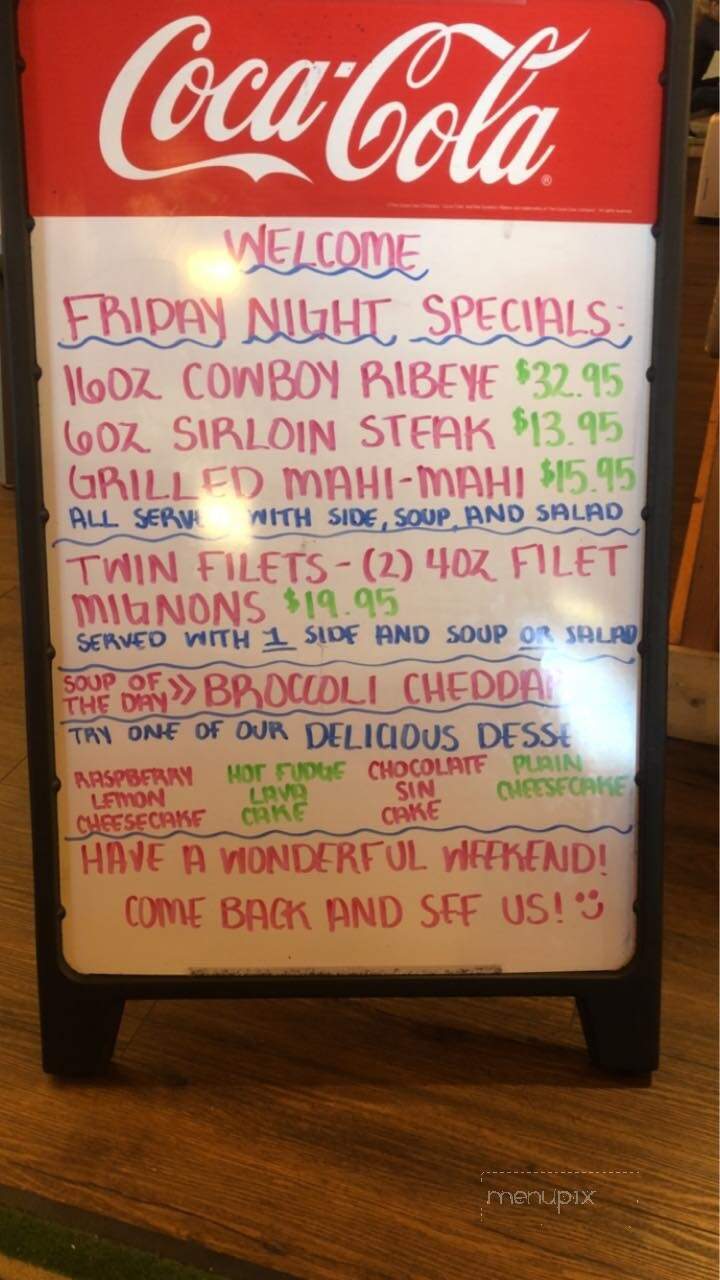 Coca-Cola
WELCOME
FRIDAY NIGHT SPECIALS:
16OZ COWBOY RIBEYE $32.95
6OZ SIRLOIN STEAK $13.95
GRILLED MAHI-MAHI $15.95
ALL WITH SIDE, SOUP AND SALAD
TWIN FILETS - (2) 4OZ FILET
MIGNONS $19.95
SERVED WITH 1 SIDE AND SOUP OR SALAD
SOUP OF THE DAY >> BROCCOLI CHEDDAR
TRY ONE OF OUR DELICIOUS
RASPBERRY LEMON CHEESECAKE
HOT FUDGE LAVA CAKE
CHOCOLATE SIN CAKE
PLAIN CHEESECAKE
HAVE A WONDERFUL WEEKEND!
COME BACK AND SEE US!
menupix